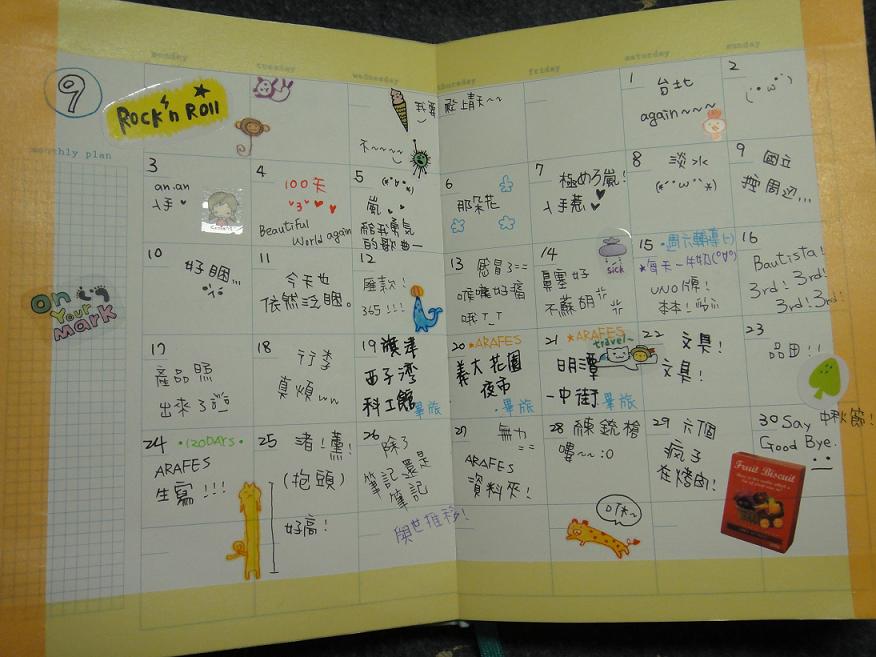 monday
tuesday
wednesday
thursday
friday
saturday
sunday
9
Rock'n Roll
monthly plan
On Your Mark
我要
不~~~~
殿上晴天~~
1 台北
again~~~
2
(・ω・)
3
an.an
入手♥
4
100天
Beautiful
World again
5
嵐
給我勇氣
的歌曲一
6
那朵花
7
極めろ嵐!
入手惹♥
8 淡水
(*ˊωˋ*)
9 國立
控周邊...
10
好睏...
11
今天也
依然泛睏。
12
匯款!
365!!!
13 感冒了==
喉嚨好痛
哦T_T
14
鼻塞好
不蘇胡
sick
15 ・周六輔導(一)
*每天一牛奶
UNO牌!
16
Bautista!
3rd! 3rd!
3rd! 3rd!
17
產品照
出來了
18
行李
真煩
19 旗津
西子灣
科工館
畢旅
20 *ARAFES
義大 花園
夜市
・畢旅
21 *ARAFES
travel~
明潭
一中街 畢旅
22
文具!
文具!
23
品田!!
24 ・120DAYS・
ARAFES
生寫!!!
25 渚!薰!
(抱頭)
好高!
26
除了
筆記還是
筆記
與世推移!
27 無力
==
ARAFES
資料夾!
28 練銃槍
嘍~~:O
29 六個
瘋子
在烤肉!
30 Say 中秋節!
Good Bye.
Fruit Biscuit